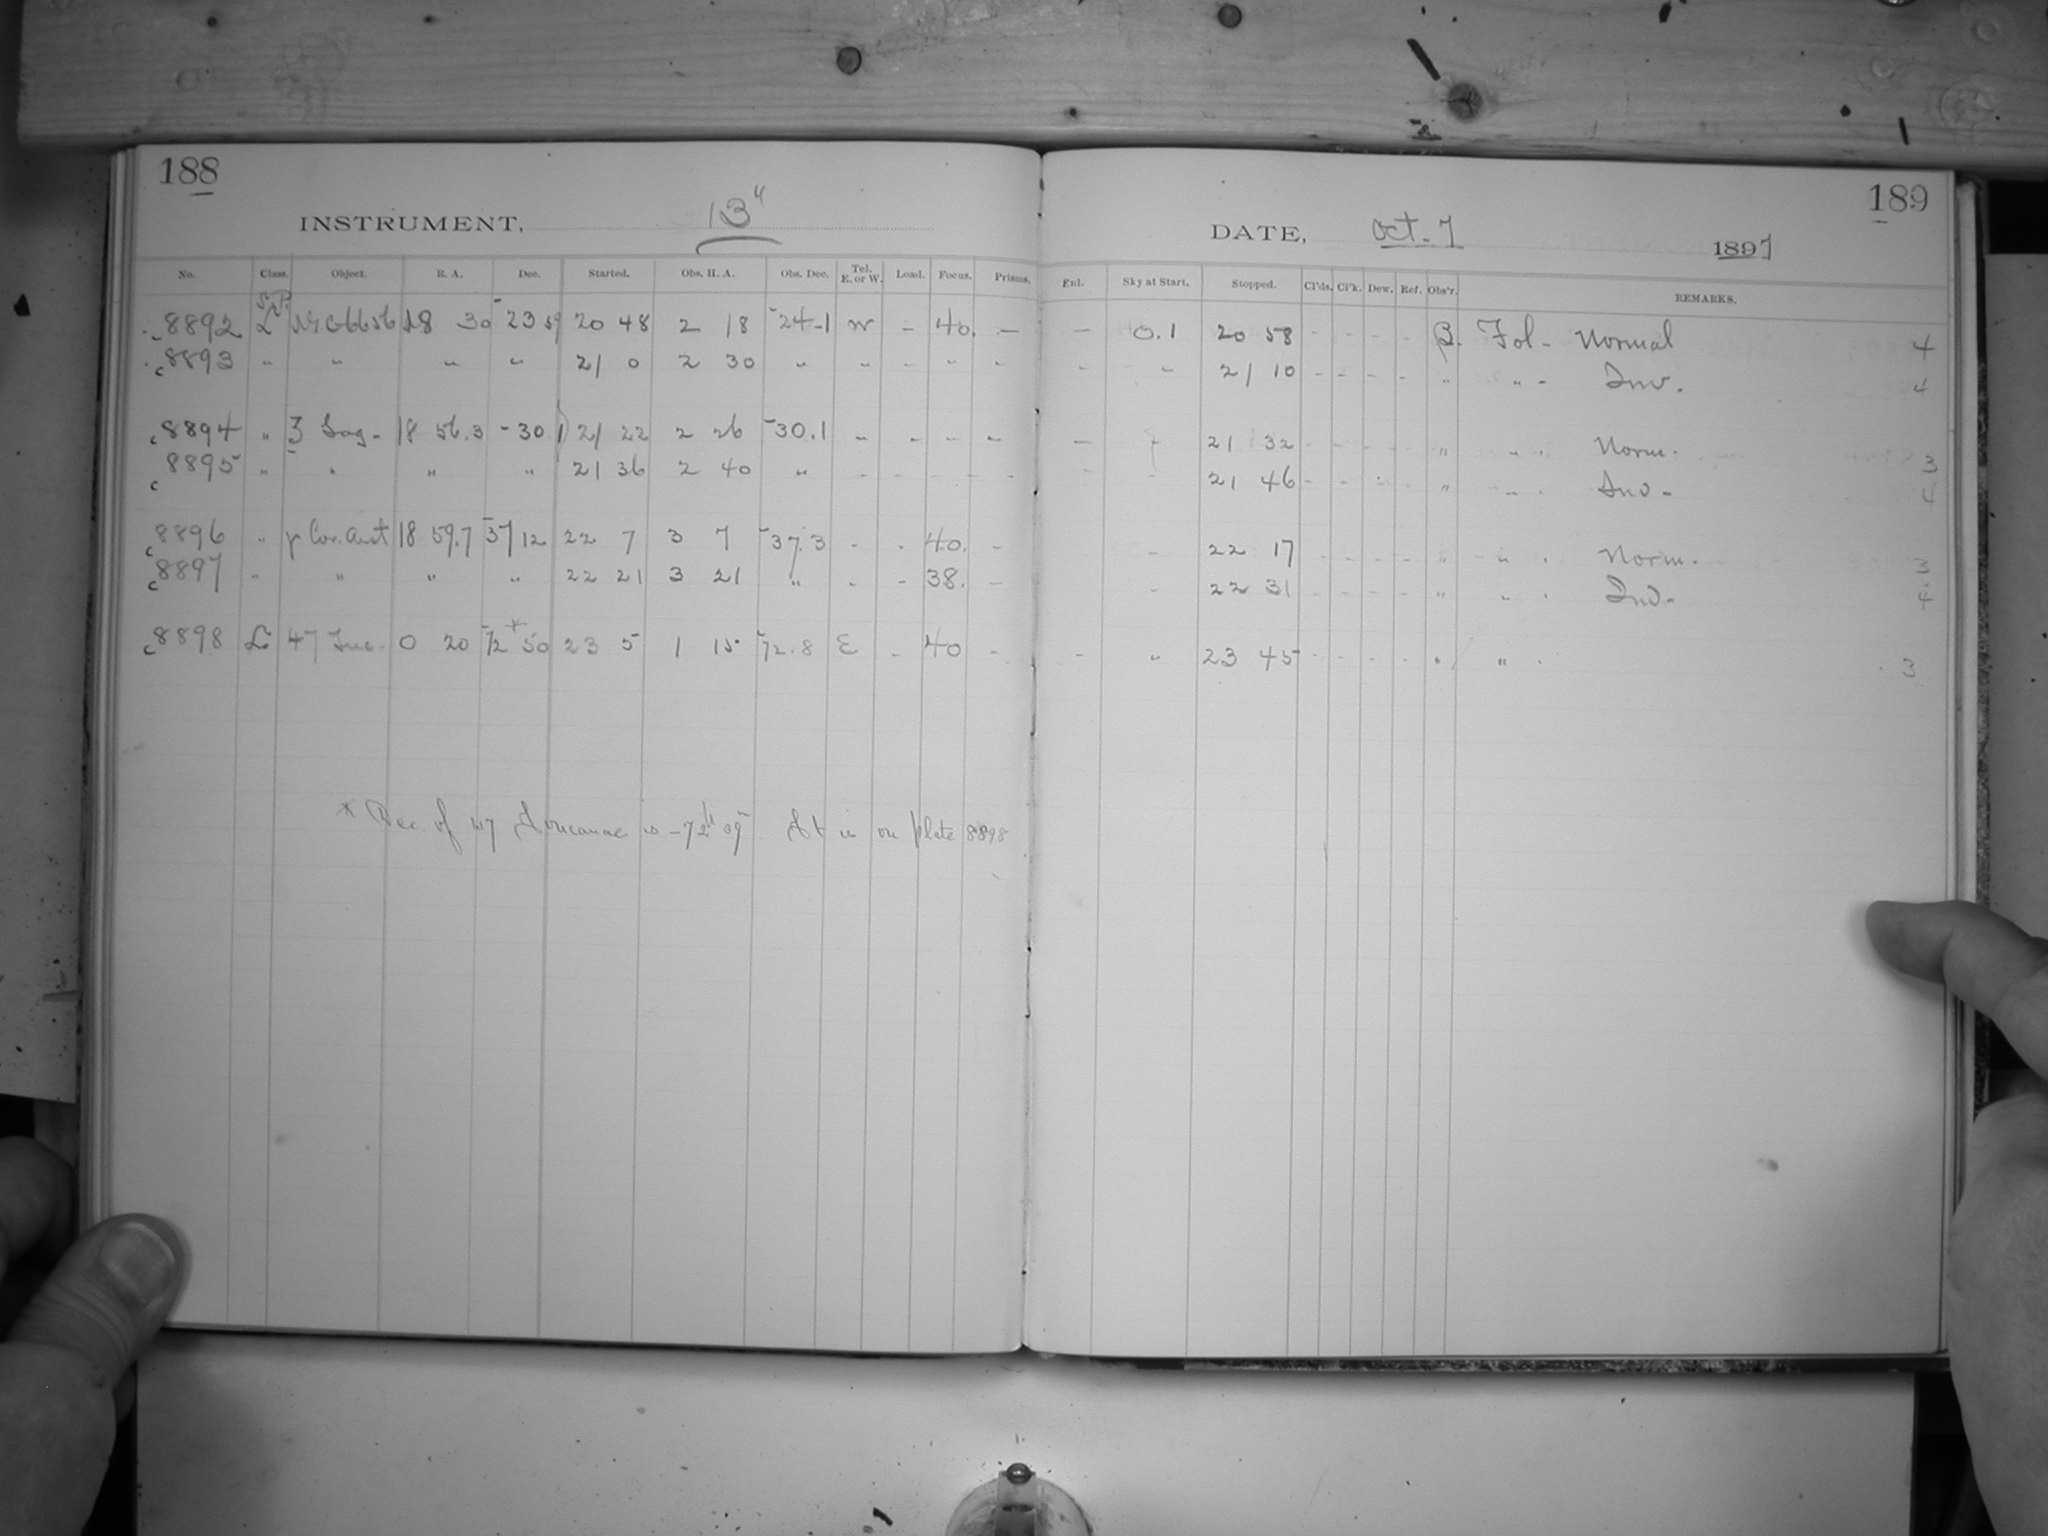 188
INSTRUMENT, 13"
No. Class. Object. R. A. Dec. Started. Obs. H. A. Obs. Dec. Tel. E. or W. Load. Focus. Prisms.
8892 L N.G.C 6656 18 30 -23 59 20 48 2 18 -24.1 W - 40. -
8893 " " " " 21 0 2 30 " " " " "
8894 " ζ Sag - 18 56.3 -30 1 21 22 2 26 -30.1 " " " "
8895 " " " " 21 36 2 40 " - - - -
8896 " γ Cor. Aust 18 59.7 -37 12 22 7 3 7 -37.3 - - 40. -
8897 " " " " 22 21 3 21 " - - 38. -
8898 L 47 Tuc. 0 20 -72* 50 23 5 1 15 -72.8 E - 40 -
* Dec. of 47 Toucanae is -72° 39' It is on plate 8898
189
DATE, Oct. 7 1897
Enl. Sky at Start. Stopped. Cl'ds. Cl'k. Dew. Ref. Obs'r. REMARKS.
- 0.1 20 58 - - - - B. Fol - Normal 4
- " 21 10 - - - - " " - Inv. 4
- 21 32 - - - - " " - Norm. 3
- - 21 46 - - - - " " - Inv - 4
- 22 17 - - - - " " - Norm. 3
- 22 31 - - - - " " - Inv - 4
- " 23 45 - - - - " " - 3